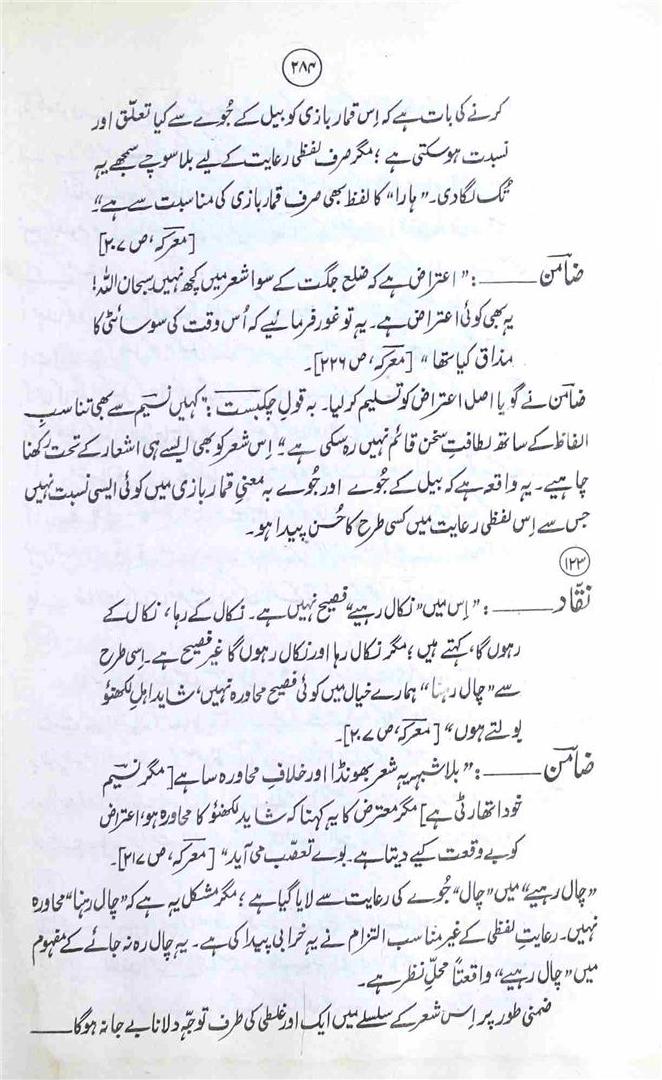 ۲۸۴
کرنے کی بات ہے کہ اِس قمار بازی کو بیل کے جُوے سے کیا تعلّق اور
نسبت ہوسکتی ہے ؛ مگر صرف لفظی رعایت کے لیے بلا سوچے سمجھے یہ
تُک لگادی۔ "ہارا" کا لفظ بھی صرف قمار بازی کی مناسبت سے ہے"۔
[معرکہ، ص ۲۰۷]
ضامن ــــــ : "اعتراض ہے کہ ضلع جگت کے سوا شعر میں کچھ نہیں۔ سبحان اللہ!
یہ بھی کوئی اعتراض ہے۔ یہ تو غور فرمائیے کہ اُس وقت کی سوسائٹی کا
مذاق کیا تھا" [معرکہ، ص ۲۲۶]۔
ضامن نے گویا اصل اعتراض کو تسلیم کرلیا۔ بہ قولِ چکبست : "کہیں نسیم سے بھی تناسبِ
الفاظ کے ساتھ لطافتِ سخن قائم نہیں رہ سکی ہے"۔ اِس شعر کو بھی ایسے ہی اشعار کے تحت رکھنا
چاہیے۔ یہ واقعہ ہے کہ بیل کے جُوے اور جُوے بہ معنیِ قمار بازی میں کوئی ایسی نسبت نہیں
جس سے اِس لفظی رعایت میں کسی طرح کا حُسن پیدا ہو۔
۱۲۳
نقّاد ــــــ : "اِس میں "نکال رہیے" فصیح نہیں ہے۔ نکال کے رہا، نکال کے
رہوں گا، کہتے ہیں ؛ مگر نکال رہا اور نکال رہوں گا غیر فصیح ہے۔ اِسی طرح
سے "چال رہنا" ہمارے خیال میں کوئی فصیح محاورہ نہیں، شاید اہلِ لکھنؤ
بولتے ہوں" [معرکہ، ص ۲۰۷]۔
ضامن ــــــ : "بلا شبہہ یہ شعر بھونڈا اور خلافِ محاورہ سا ہے [مگر نسیم
خود اتھارٹی ہے] مگر معترض کا یہ کہنا کہ شاید لکھنؤ کا محاورہ ہو، اعتراض
کو بے وقعت کیے دیتا ہے۔ بوے تعصّب می آید" [معرکہ، ص ۲۱۷]۔
"چال رہیے" میں "چال" جُوے کی رعایت سے لایا گیا ہے ؛ مگر مشکل یہ ہے کہ "چال رہنا" محاورہ
نہیں۔ رعایتِ لفظی کے غیر مناسب التزام نے یہ خرابی پیدا کی ہے۔ یہ چال رہ نہ جائے کے مفہوم
میں "چال رہیے" واقعتاً محلِّ نظر ہے۔
ضمنی طور پر اِس شعر کے سلسلے میں ایک اور غلطی کی طرف توجّہ دلانا بے جا نہ ہوگا ــــــ